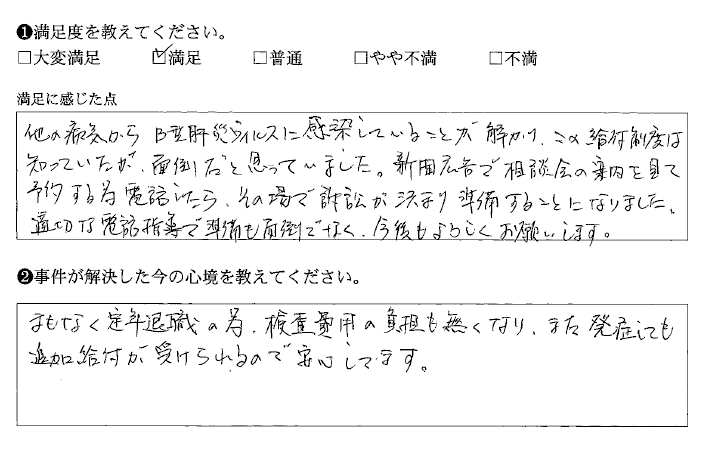 ❶満足度を教えてください。
□大変満足 ☑満足 □普通 □やや不満 □不満
満足に感じた点
他の病気から B型肝炎ウィルスに感染していることが解かり、この給付制度は
知っていたが、面倒だと思っていました。新聞広告で相談会の案内を見て
予約する為電話したら、その場で訴訟が決まり準備することになりました。
適切な電話指導で準備も面倒でなく、今後もよろしくお願いします。
❷事件が解決した今の心境を教えてください。
まもなく定年退職の為、検査費用の負担も無くなり、また発症しても
追加給付が受けられるので安心してます。